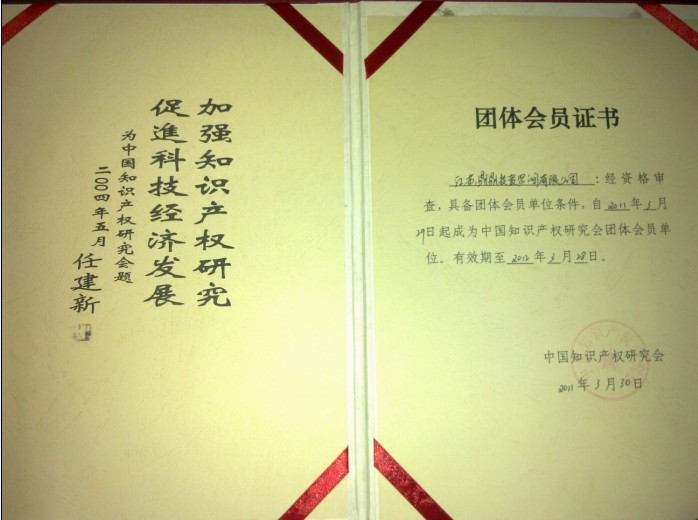 加强知识产权研究
促進科技经济发展
为中国知识产权研究会题
二〇〇四年五月 任建新
团体会员证书
江苏鼎鼎投资咨询有限公司:经资格审
查,具备团体会员单位条件,自2011年3月
29日起成为中国知识产权研究会团体会员单
位。有效期至2012年3月28日。
中国知识产权研究会
2011年3月30日